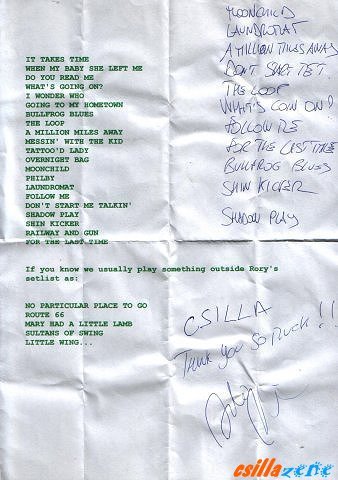 IT TAKES TIME
WHEN MY BABY SHE LEFT ME
DO YOU READ ME
WHAT'S GOING ON?
I WONDER WHO
GOING TO MY HOMETOWN
BULLFROG BLUES
THE LOOP
A MILLION MILES AWAY
MESSIN' WITH THE KID
TATTOO'D LADY
OVERNIGHT BAG
MOONCHILD
PHILBY
LAUNDROMAT
FOLLOW ME
DON'T START ME TALKIN'
SHADOW PLAY
SHIN KICKER
RAILWAY AND GUN
FOR THE LAST TIME
If you know we usually play something outside Rory's
setlist as:
NO PARTICULAR PLACE TO GO
ROUTE 66
MARY HAD A LITTLE LAMB
SULTANS OF SWING
LITTLE WING...
MOONCHILD
LAUNDROMAT
A MILLION MILES AWAY
DON'T START
THE LOOP
WHAT'S GOIN ON?
FOLLOW ME
FOR THE LAST TIME
BULLFROG BLUES
SHIN KICKER
SHADOW PLAY
CSILLA
Thank you so much!!
csillazene